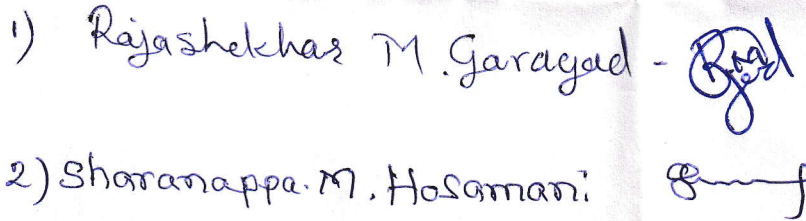 1) Rajashekhar M. Garagad -
2) Sharanappa. M. Hosamani